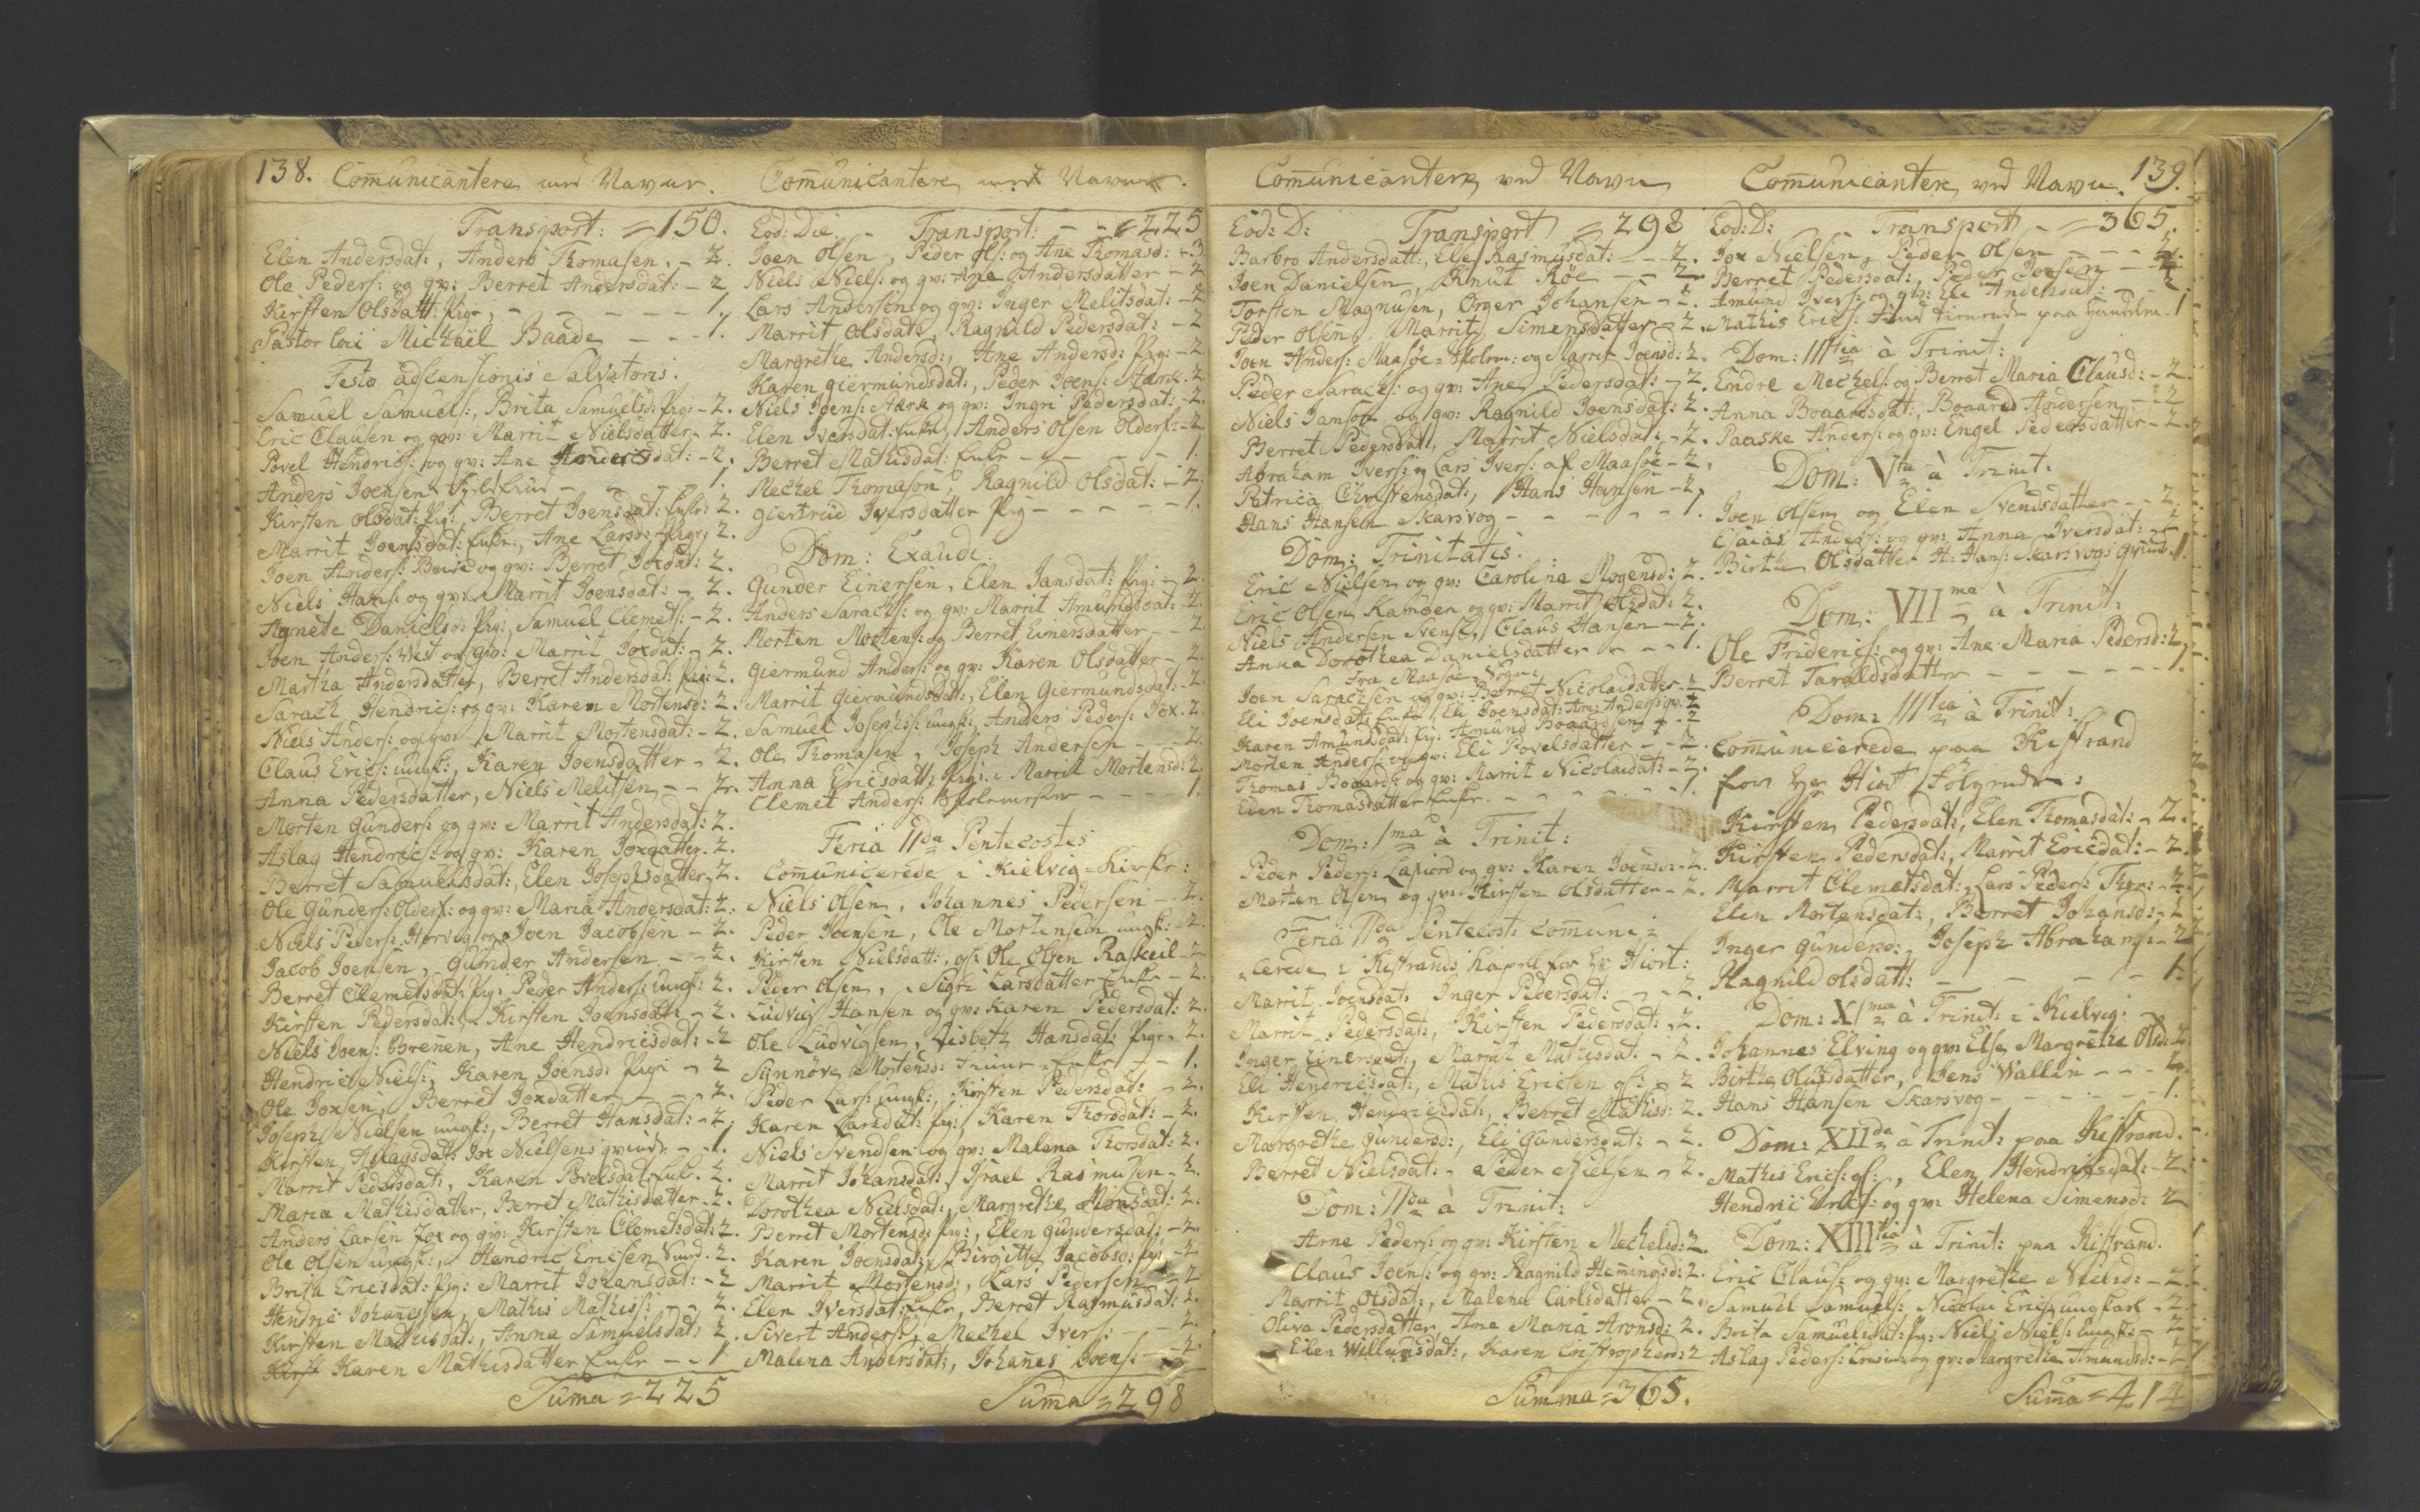 138. Comunicantere ved Navne.
Transport: = 150.
Elen Andersdat:, Anders Thomasen. - 2.
Ole Peders: og qv: Berret Andersdat: - 2
Kirsten Olsdatt: Pige, - - - - 1.
Pastor loci Michaël Baade - - - 1.
Festo adscensionis Salvatoris.
Samuel Samuels:, Brita Samuelsd: Pig: - 2.
Eric Clausen og qv: Marrit Nielsdatter - 2.
Povel Hendrics: og qv: Ane Andersdat: - 2.
Anders Joensen - - - 1.
Kirsten Olsdat: Pig: Berret Joensdat: Enke: 2.
Marrit Joensdat: Enke:, Ane Larsd: Pige: 2.
Joen Anders: og qv: Berret Joxdat: 2.
Niels Hans: og qv: Marrit Joensdat: - 2.
Agnete Danielsd: Pig:, Samuel Clemets: - 2.
Joen Anders: West og qv: Marrit Joxdat: - 2.
Martha Andersdatter, Berret Andersdat: Pig: 2.
Sarach Hendrics: og qv: Karen Mortensd: 2.
Niels Anders: og qv: Marrit Mortensdat: - 2.
Claus Erics: ungk:, Karen Joensdatter - 2.
Anna Pedersdatter, Niels Melitsen - - 2.
Morten Gunders: og qv: Marrit Andersdat: 2.
Aslag Hendrics: og qv: Karen Joxdatter. 2.
Berret Samuelsdat:, Elen Josephsdatter. 2.
Ole Gunders: Olderf: og qv: Maria Andersdat: 2.
Niels Peders: og Joen Jacobsen - 2.
Jacob Joensen, Gunder Andersen - - 2.
Berret Clemetsdat: Pig: Peder Anders: ungk: 2.
Kirsten Pedersdat:, Kirsten Joensdat: - 2.
Niels Joens: Brenen, Ane Hendricsdat: - 2
Hendric Niels:, Karen Joensd: Pige - 2
Ole Joxsen, Berret Joxdatter - - - 2.
Joseph Nielsen ungk:, Berret Hansdat: - 2.
Kirsten Aslagsdat: Jox Nielsens qvinde - 1.
Marrit Pedersdat:, Karen Povelsdat: Enke. 2.
Maria Mathisdatter, Berret Mathisdatter. 2.
Anders Larsen Jox og qv: Kirsten Clemetsdat: 2.
Ole Olsen ungk:, Hendric Ericsen - 2.
Brita Ericsdat: Pig: Marrit Johansdat: - 2
Hendric Johannesen, Mathis Mathiss: - - 2.
Kirsten Mathisdat:, Anna Samuelsdat: 2.
Karen Mathisdatter Enke - - 1
Suma = 225
Comunicantere ved Navne.
Eod: Die. - Transport: - - = 225
Joen Olsen, Peder Ols: og Ane Thomasd: - 3
Niels Niels: og qv: Ane Andersdatter - 2
Lars Andersen og qv: Inger Melitsdat: - 2
Marrit Olsdat:, Ragnild Pedersdat: - 2
Margrethe Andersd:, Ane Andersd: Pig: - 2
Karen Giermundsdat:, Peder Joens: Stærk. 2
Niels Joens: Stærk og qv: Ingri Pedersdat: - 2.
Elen Iversdat: Enke, Anders Olsen Olderf: - 2
Berret Mathisdat: Enke - - - - 1.
Mechel Thomason, Ragnild Olsdat: - 2.
Giertrud Iversdatter Pig - - - - 1.
Dom: Exaudi.
Gunder Einersen, Elen Jansdat: Pig: - 2.
Anders Sarachs: og qv: Marrit Amundsdat: 2.
Morten Mortens: og Berret Einersdatter - - 2
Giermund Anders: og qv: Karen Olsdatter - 2.
Marrit Giermundsdat:, Elen Giermundsdat: - 2.
Samuel Josephs: ungk:, Anders Peders: Jox. 2.
Ole Thomasen, Joseph Andersen - - - 2.
Anna Ericsdatt: Pig: Marrit Mortensd: 2
Clemet Anders: Skolemester - - - 1.
Feria IIda Pentecostes
Comunicerede i Kielvig-Kirke:
Niels Olsen, Johannes Pedersen - 2.
Peder Joensen, Ole Mortensen ungk: - 2.
Kirsten Nielsdatt:, Ole Olsen Raskeil - 2
Peder Olsen, Sigri Larsdatter Enke - 2.
Ludvig Hansen og qv: Karen Pedersdat: 2.
Ole Ludvigsen, Lisbeth Hansdat: Pige - 2.
Synnöve Mortensd: - 1.
Peder Lars: ungk:, Kirsten Pedersdat: - 2.
Karen Larsdat: Pig:, Karen Thorsdat: - 2.
Niels Svendsen og qv: Malena Thorsdat: 2.
Marrit Johansdat:, Israel Rasmusen - 2.
Dorothea Nielsdat:, Margrethe Monsdat: 2.
Berret Mortensd: Pig:, Elen Gundersdat: - 2.
Karen Joensdat:, Birgitte Jacobsd: Pig - 2
Marrit Mortensd:, Lars Pedersen - 2
Elen Iversdat: Enke, Berret Rasmusdat: 2.
Sivert Anders:, Mechel Ivers: - - 2.
Malena Andersdat:, Johanes Joens: - 2.
Suma = 298
Comunicantere ved Navne
Eod: D: Transport = 298
Barbro Andersdatt:, Else Rasmusdat: - - 2.
Joen Danielsen, Knut Röe - - 2
Torsten Magnusen, Örger Johansen - 2.
Peder Olsen, Marrit Simensdatter - 2.
Joen Anders: Maasöe-Skolem: og Marrit Joensd: 2.
Peder Sarachs: og qv: Ane Pedersdat: - 2.
Niels Janson og qv: Ragnild Joensdat: 2.
Berret Pedersdatt, Marrit Nielsdat: - 2.
Abraham Ivers: og Lars Ivers: af Maasöe - 2.
Petrica Christensdat:, Hans Hansen - 2.
Hans Hansen Skarsvog - - - - 1.
Dom: Trinitatis.
Eric Nielsen og qv: Carolina Mogensd: 2.
Eric Olsen Kamöen og qv: Marrit Olsdat: 2.
Niels Andersen Svensk, Claus Hansen - 2.
Anna Dorothea Danielsdatter - - - 1.
Fra Maasöe Sogn:
Joen Sarachsen og qv: Berret Nicolaidatter - 2
Eli Joensdat: Enke, Eli Joensdat: Am: Anders: qv. 2
Karen Amundsdat: Pig: Amund Boaardsen - 2
Morten Anders: og qv: Eli Povelsdatter - - 2.
Thomas Boaards: og qv: Marrit Nicolaidat: - 2.
Elen Thomasdatter Enke. - - - - - 1.
Dom: 1ma à Trinit:
Peder Peders: Laxiord og qv: Karen Joensd: - 2.
Morten Olsen og qv: Kirsten Olsdatter - 2.
Feria IIda Pentecost: comuni-
cerede i Kistrands Kapel for Hr Hiort:
Marrit Joensdat: Inger Pedersdat: - - 2.
Marrit Pedersdat:, Kirsten Pedersdat: - 2.
Inger Einersdat:, Marrit Mathisdat: - 2.
Eli Hendricsdat:, Mathis Ericsen - 2
Kirsten Hendricsdat:, Berret Mathisd: 2.
Margrethe Gundersd:, Eli Gundersdat: - 2.
Berret Nielsdat: - Peder Nielsen - 2.
Dom: IIda à Trinit:
Arne Peders: og qv: Kirsten Mechelsd: 2.
Claus Joens: og qv: Ragnild Hemingsd: 2.
Marrit Olsdat:, Malena Carlsdatter - 2.
Oliva Pedersdatter Ane Maria Aronsd: 2.
Elen Willumsdat:, Karen Cristophersd: 2
Summa = 365.
Comunicantere ved Navne. 139.
Eod: D: Transport - = 365.
Jox Nielsen, Peder Olsen - - - 2.
Berret Pedersdat:, Peder Joensen - 2.
Amund Ivers: og qv: Eli Andersdat: - 2.
Mathis Erics: paa 1
Dom: IIItia à Trinit:
Endre Mechels: og Berret Maria Clausd: - 2
Anna Boaardsdat:, Boaard Andersen - - 2
Paaske Anders: og qv: Engel Pedersdatter - 2.
Dom: Vta à Trinit:
Joen Olsen og Elen Svendsdatter - - 2.
Anders: og qv: Anna Iversdat: - 2
Birthe Olsdatter H: Hans: Skarsvogs qvinde. 1.
Dom: VIIma à Trinit:
Ole Friderics: og qv: Ane Maria Pedersd: 2.
Berret Taraldsdatter - - - - 1.
Dom: IIItia à Trinit:
Comunicerede paa Kistrand
for Hr Hiort fölgende:
Kirsten Pedersdat:, Elen Thomasdat: - 2.
Kirsten Pedersdat:, Marrit Ericdat: - 2.
Marrit Clemetsdat:, Lars Peders: - 2.
Elen Mortensdat:, Berret Johansd: - 2
Inger Gundersd:, Joseph Abrahams: - 2
Ragnild Olsdatt: - - - - - 1.
Dom: XIma à Trinit: i Kielvig:
Johannes Elving og qv: Else Margrethe Olsd: 2.
Birthe Olufsdatter, Jens Wallin - - - 2.
Hans Hansen Skarsvog - - - - 1.
Dom: XIIda à Trinit: paa Kistrand.
Mathis Erics:, Elen Hendricsdat: - 2.
Hendric Erics: og qv: Helena Simensd: 2
Dom: XIIItia à Trinit: paa Kistrand.
Eric Claus: og qv: Margrethe Nielsd: - 2.
Samuel Samuels: Nicolai Erics: ungkarl - 2.
Brita Samuelsdat: Pig: Niels Niels: ungk: - 2
Aslag Peders: og qv: Margrethe Amundsd: - 2.
Suma = 414